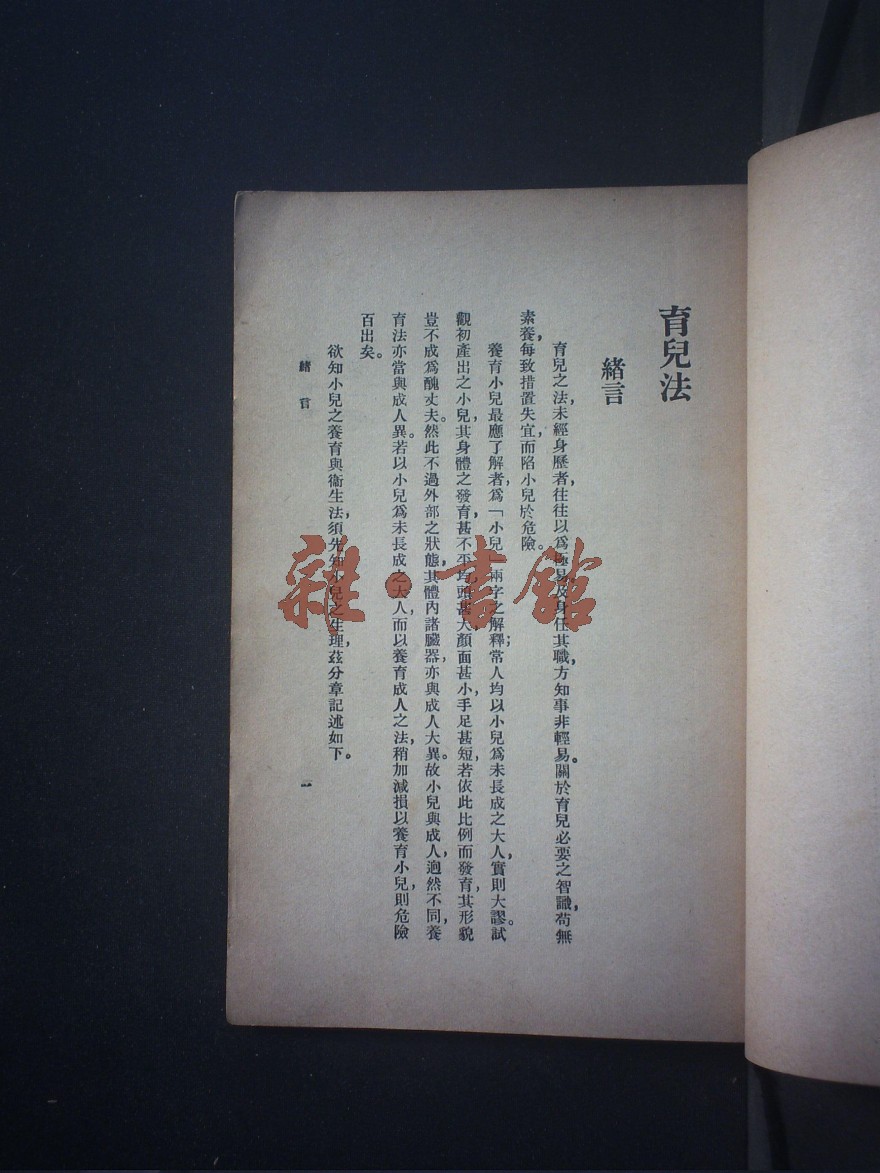 育兒法
緒言
育兒之法，未經身歷者，往往以爲極易，及身任其職，方知事非輕易。關於育兒必要之智識，苟無
素養，每致措置失宜，而陷小兒於危險。
養育小兒最應了解者，爲「小兒」兩字之解釋；常人均以小兒爲未長成之大人，實則大謬。試
觀初產出之小兒，其身體之發育甚不平均，頭甚大，顏面甚小，手足甚短，若依此比例而發育，其形貌
豈不成爲醜丈夫。然此不過外部之狀態，其體內諸臟器，亦與成人大異。故小兒與成人，迥然不同，養
育法亦當與成人異。若以小兒爲未長成之大人，而以養育成人之法，稍加減損以養育小兒，則危險
百出矣。
欲知小兒之養育與衞生法，須先知小兒之生理，茲分章記述如下。
緒言
一
雜·書館